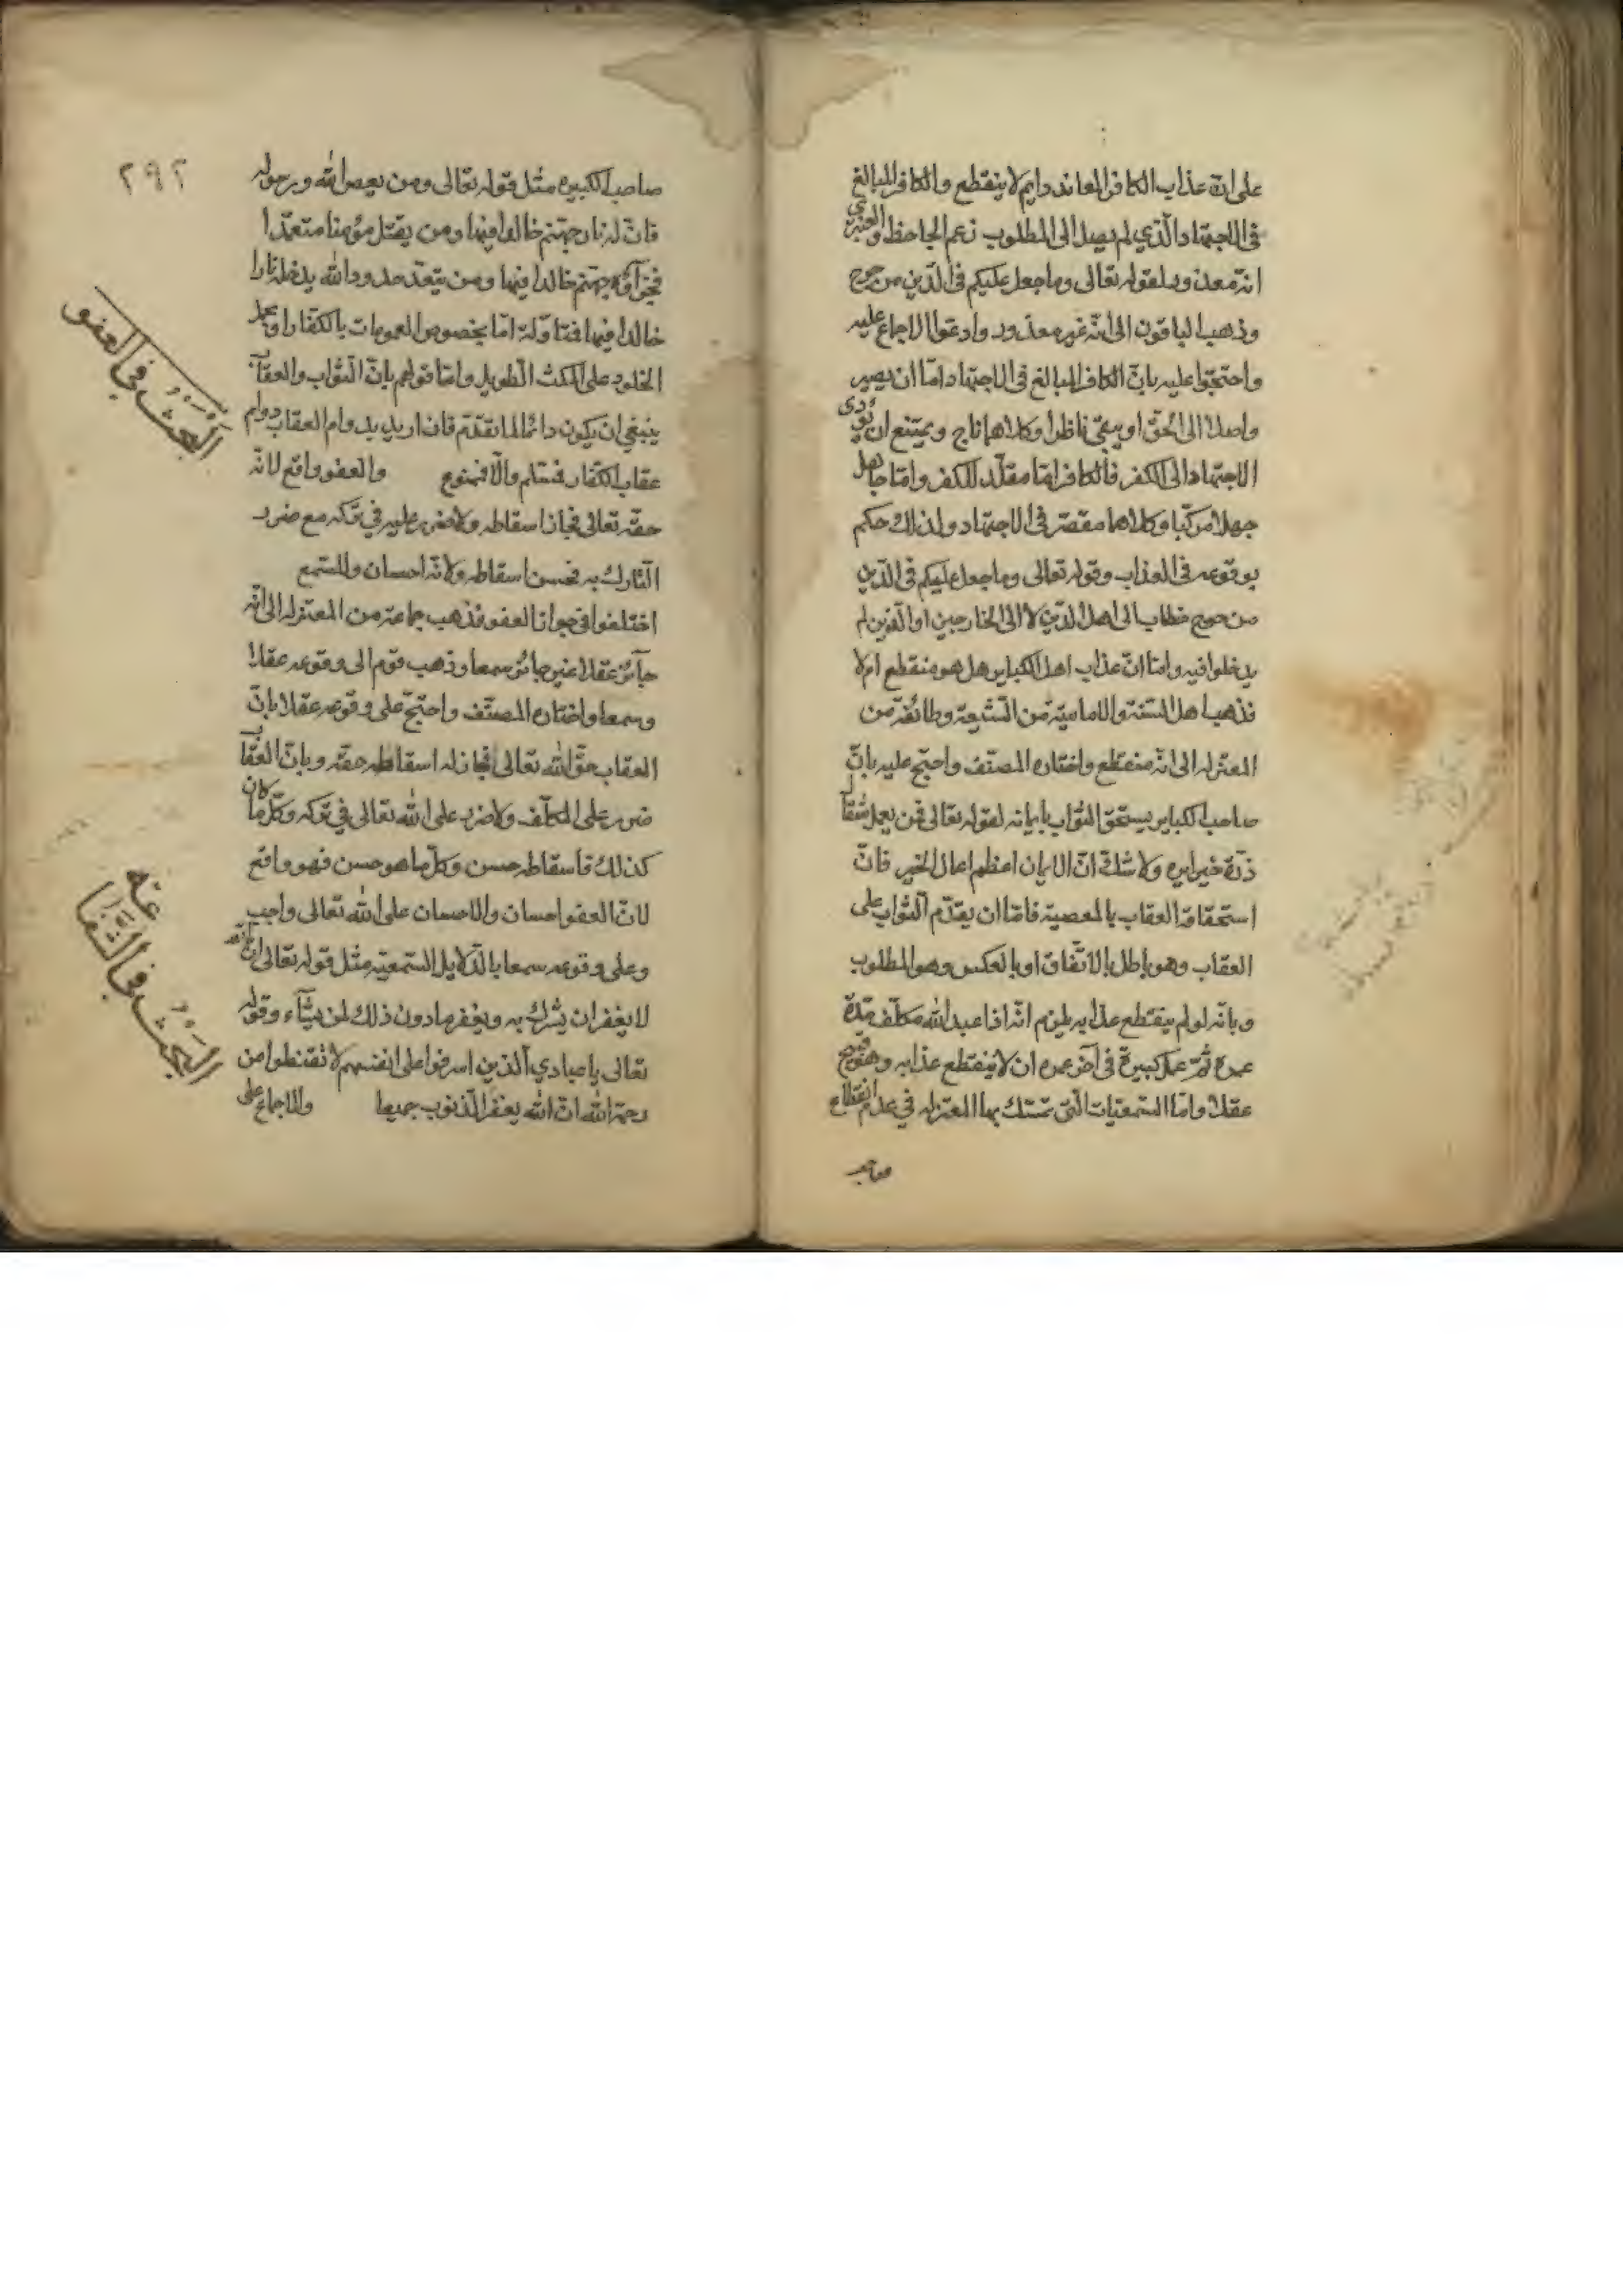 على ان عذاب الكافر المعاند دايم لا ينقطع والكافر المبالغ
فى الاجتهاد الّذي لم يصل الى المطلوب زعم الجاحظ والعنبري
انّه معذور لقوله تعالى وما جعل عليكم فى الدّين من حرج
وذهب الباقون الى انّه غير معذور وادعوا الاجماع عليه
واحتجّوا عليه بانّ الكافر المبالغ فى الاجتهاد امّا ان يصير
واصلا الى الحقّ او يبقى ناظرا وكلاهما ناج ويمتنع ان يؤدى
الاجتهاد الى الكفر فالكافر امّا مقلّد للكفر وامّا جاهل
جهلا مركّبا وكلاهما مقصّر فى الاجتهاد ولذلك حكم
بوقوعه فى العذاب وقوله تعالى وما جعل عليكم فى الدّين
من حرج خطاب الى اهل الدّين لا الى الخارجين او الّذين لم
يدخلوا فيه وامّا انّ عذاب اهل الكباير هل هو منقطع ام لا
فذهب اهل السّنة والاماميّة من الشّيعة وطائفة من
المعتزله الى انّه منقطع واختاره المصنّف واحتجّ عليه بانّ
صاحب الكباير يستحق الثّواب بايمانه لقوله تعالى فمن يعمل مثقال
ذرّة خيرا يره ولا شكّ انّ الايمان اعظم اعمال الخير فانّ
استحقاق العقاب بالمعصية فامّا ان يقدّم الثّواب على
العقاب وهو باطل بالاتّفاق او بالعكس وهو المطلوب
وبانّه لو لم ينقطع عذابه يلزم انّه اذا عبد الله مكلّف مدّة
عمره ثمّ عمل كبيرة فى آخر عمره ان لا ينقطع عذابه وهو قبيح
عقلا وامّا السّمعيّات الّتى تمسّك بها المعتزله في عدم انقطاع
٢٩٢
صاحب الكبيره مثل قوله تعالى ومن يعص الله ورسوله
فانّ له نار جهنّم خالدا فيها ومن يقتل مؤمنا متعمّدا
فجزآؤه جهنّم خالدا فيها ومن يتعدّ حدود الله يدخله نارا
خالدا فيها فمتاوّلة امّا بخصوص العمومات بالكفّار او بحمل
الخلود على المكث الطّويل وامّا قولهم بانّ الثّواب والعقاب
ينبغي ان يكون دائما لما تقدّم فان اريد بدوام العقاب دوام
عقاب الكفّار فمسلّم والّا فممنوع والعفو واقع لانّه
حقّه تعالى فجاز اسقاطه ولا ضرر عليه في تركه مع ضرر
التّارك به فحسن اسقاطه ولانّه احسان وللسّمع
اختلفوا فى جواز العفو فذهب جماعة من المعتزله الى انّه
جآئز عقلا غير جائز سمعا وذهب قوم الى وقوعه عقلا
وسمعا واختاره المصنّف واحتجّ على وقوعه عقلا بانّ
العقاب حقّ الله تعالى فجاز له اسقاطه حقّه وبانّ العقاب
ضرر على المكلّف ولا ضرر على الله تعالى في تركه وكلّ ما كان
كذلك فاسقاطه حسن وكلّ ما هو حسن فهو واقع
لانّ العفو احسان والاحسان على الله تعالى واجب
وعلى وقوعه سمعا بالدّلايل السّمعيّة مثل قوله تعالى انّ الله
لا يغفر ان يشرك به ويغفر ما دون ذلك لمن يشآء وقوله
تعالى يا عبادي الّذين اسرفوا على انفسهم لا تقنطوا من
رحمة الله انّ الله يغفر الذّنوب جميعا والاجماع على
البحث في العفو
البحث في الشّفاعة